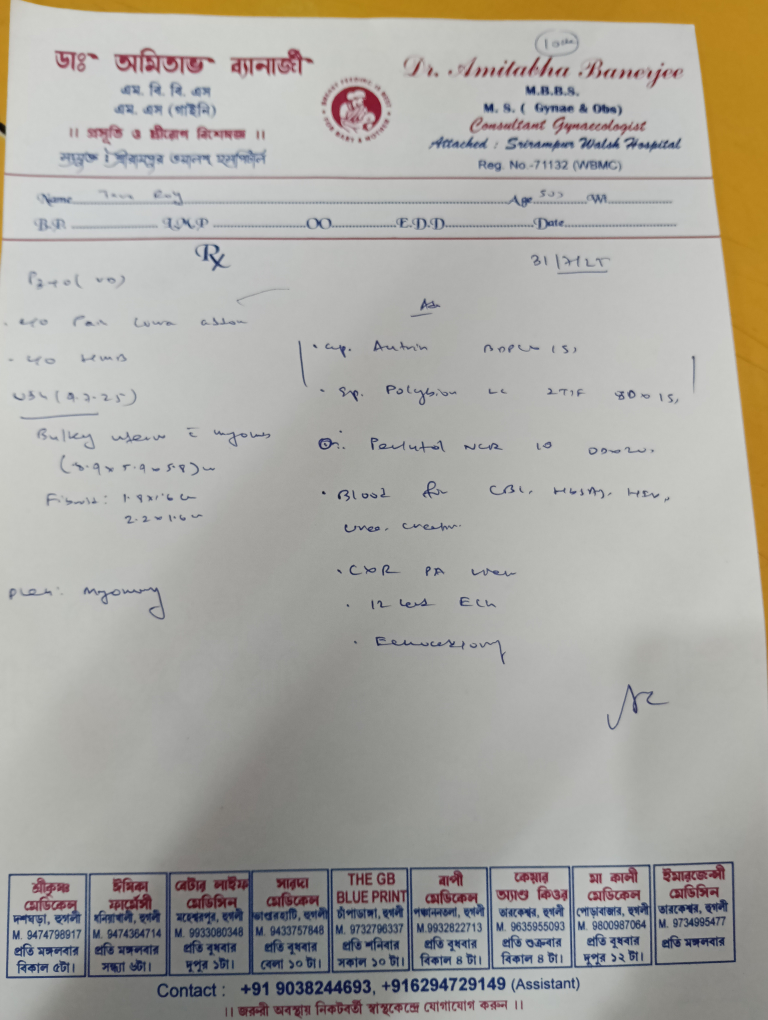 ডাঃ অমিতাভ ব্যানার্জী
এম. বি. বি. এস
এম. এস (গাইনি)
।। প্রসূতি ও স্ত্রীরোগ বিশেষজ্ঞ ।।
সংযুক্ত : শ্রীরামপুর ওয়ালশ হসপিটাল
BREAST FEEDING IS BEST FOR BABY & MOTHER
Dr. Amitabha Banerjee
M.B.B.S.
M. S. ( Gynae & Obs)
Consultant Gynaecologist
Attached : Srirampur Walsh Hospital
Reg. No.-71132 (WBMC)
Name Roy Age Wt
B.P. L.M.P OO E.D.D. Date
Rx
P2+0 (VD)
Pain Lower abdom
HMB
USG (9.7.25)
Bulky uterus c myoma
Fibroid: 1.8x1.6 cm
2.2x1.6 cm
Plan:
31/7/25
Adv
Cap. Autrin
Syp. Polybion LC 2TSF
10
Blood for CBC, HBSAg, HCV,
Urea, Creatin.
CXR PA view
12 lead ECG
Echocardiography
শ্রীকৃষ্ণ মেডিকেল
দশঘড়া, হুগলী
M. 9474798917
প্রতি মঙ্গলবার
বিকাল ৫টা।
ঈশিকা ফার্মেসী
ধনিয়াখালী, হুগলী
M. 9474364714
প্রতি মঙ্গলবার
সন্ধ্যা ৬টা।
বেটার লাইফ মেডিসিন
মহেশ্বরপুর, হুগলী
M. 9933080348
প্রতি বুধবার
দুপুর ১টা।
সারদা মেডিকেল
ভাণ্ডারহাটি, হুগলী
M. 9433757848
প্রতি বুধবার
বেলা ১০ টা।
THE GB BLUE PRINT
চাঁপাডাঙ্গা, হুগলী
M. 9732796337
প্রতি শনিবার
সকাল ১০ টা।
বাপী মেডিকেল
হুগলী
M.9932822713
প্রতি বুধবার
বিকাল ৪ টা।
কেয়ার অ্যাণ্ড কিওর
তারকেশ্বর, হুগলী
M. 9635955093
প্রতি শুক্রবার
বিকাল ৪ টা।
মা কালী মেডিকেল
পোড়াবাজার, হুগলী
M. 9800987064
প্রতি বুধবার
দুপুর ১২ টা।
ইমারজেন্সী মেডিসিন
তারকেশ্বর, হুগলী
M. 9734995477
প্রতি মঙ্গলবার
Contact : +91 9038244693, +916294729149 (Assistant)
।। জরুরী অবস্থায় নিকটবর্তী স্বাস্থ্যকেন্দ্রে যোগাযোগ করুন ।।